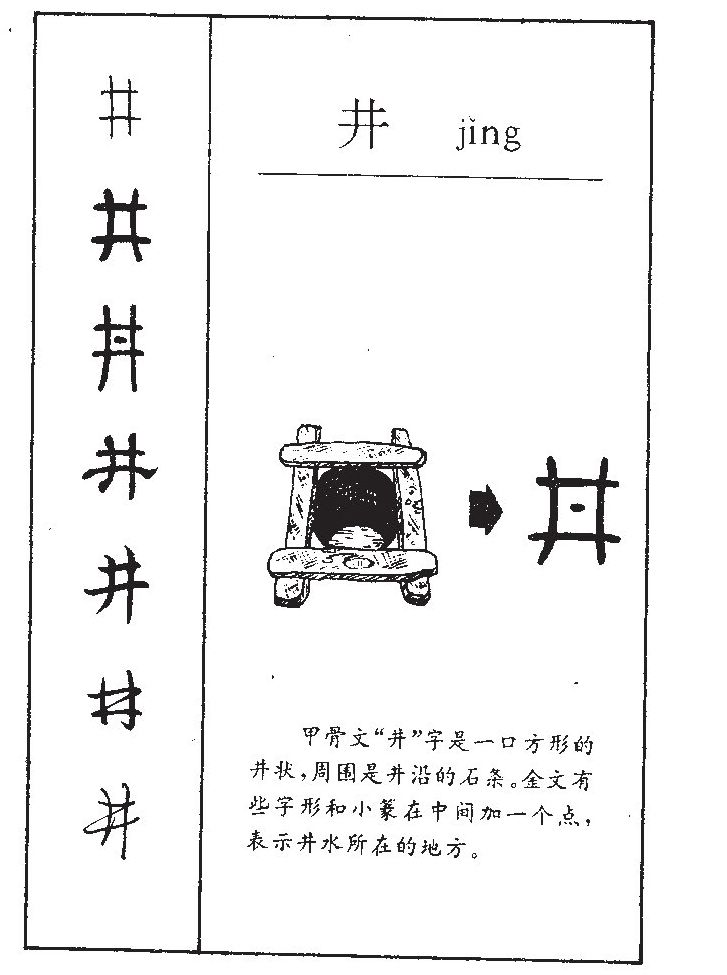 井 jǐng
甲骨文“井”字是一口方形的
井状，周围是井沿的石条。金文有
些字形和小篆在中间加一个点，
表示井水所在的地方。